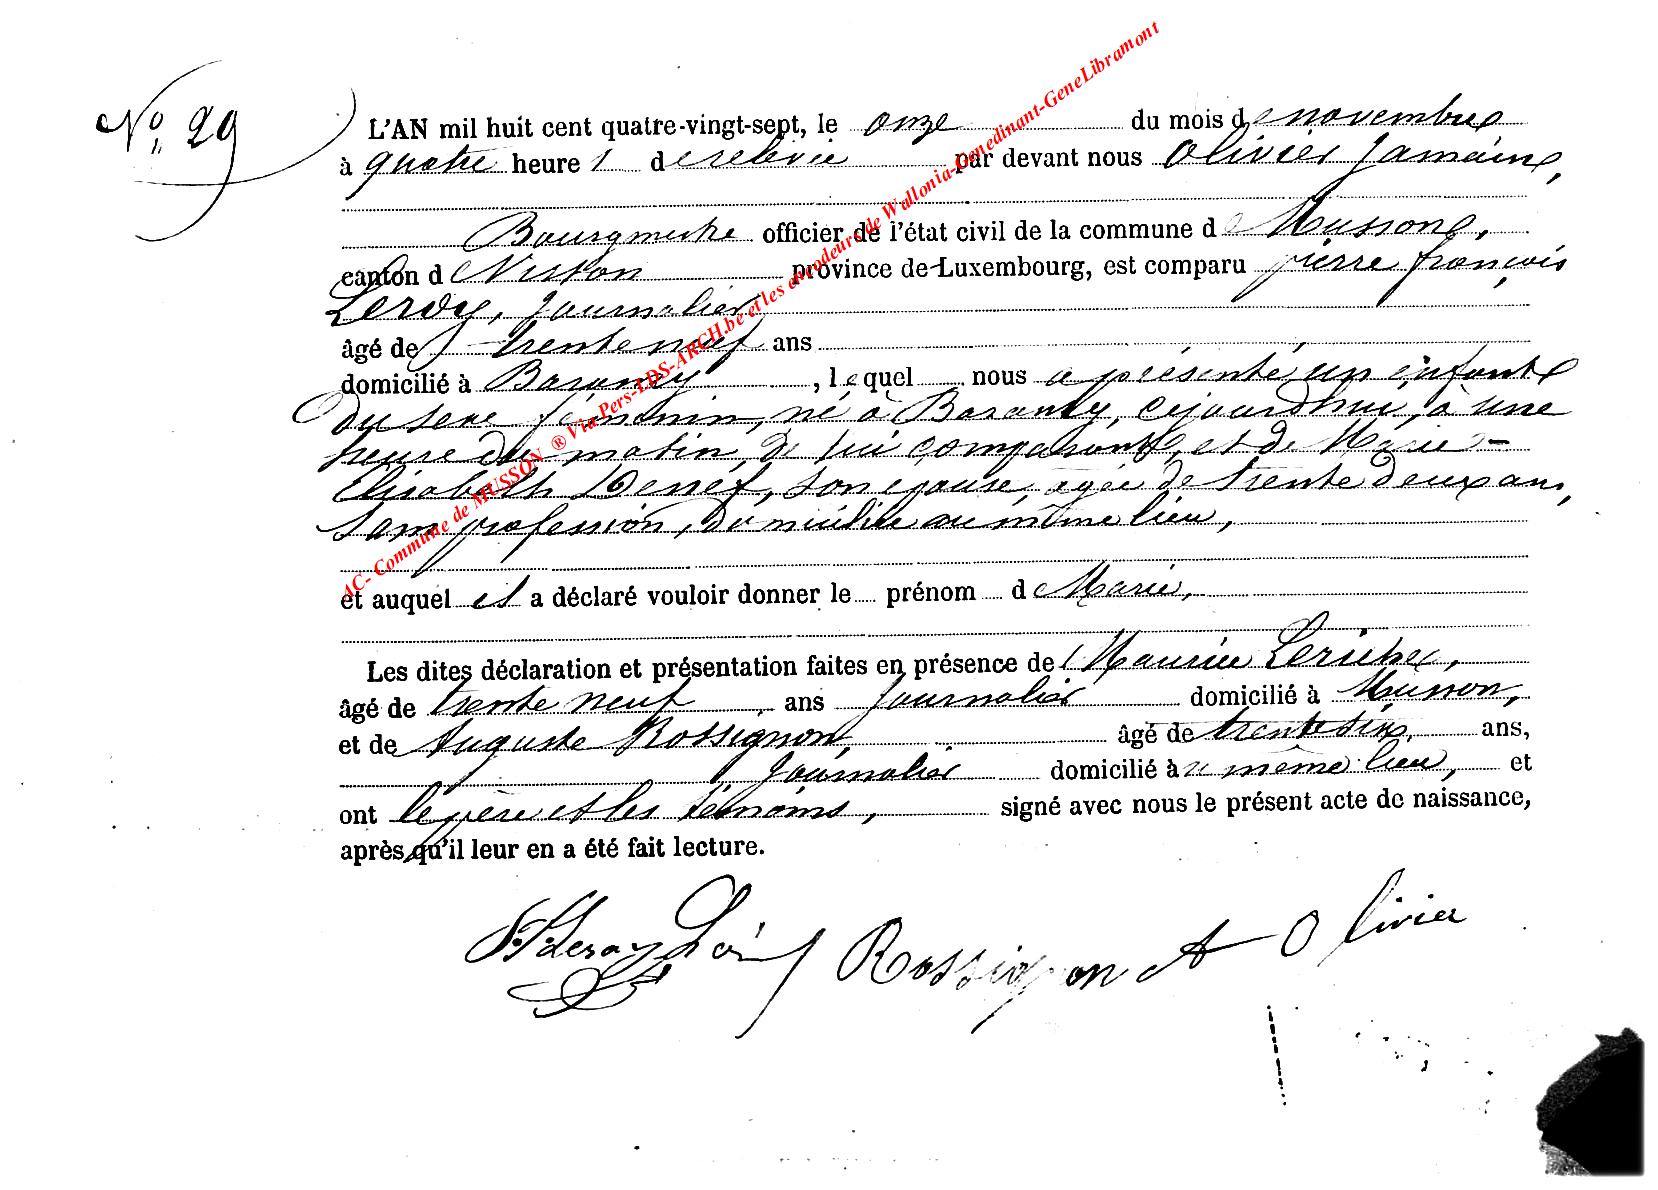 No 29
L'AN mil huit cent quatre-vingt-sept, le onze du mois de novembre
à quatre heures de relevée par devant nous Olivier Jamain,
Bourgmestre officier de l'état civil de la commune de Musson,
canton de Virton province de Luxembourg, est comparu pierre françois
Leroy, Journalier,
âgé de trente neuf ans
domicilié à Baranzy, lequel nous a présenté un enfant
du sexe féminin, né à Baranzy, cejourd'hui, à une
heure du matin, de lui comparant, et de Marie-
Elisabeth Denef, son épouse, agée de trente deux ans,
sans profession, domiciliée au même lieu,
et auquel il a déclaré vouloir donner le prénom de Marie,
Les dites déclaration et présentation faites en présence de Maurice
âgé de trente neuf ans Journalier domicilié à Musson,
et de Auguste Rossignon, âgé de trente six, ans,
Journalier domicilié au même lieu, et
ont le père et les témoins, signé avec nous le présent acte de naissance,
après qu'il leur en a été fait lecture.
Leroy Rossignon A Olivier
AC- Commune de MUSSON ® Via Pers-LDS-ARCH.be et les encodeurs de Wallonia-Genedinant-GeneLibramont